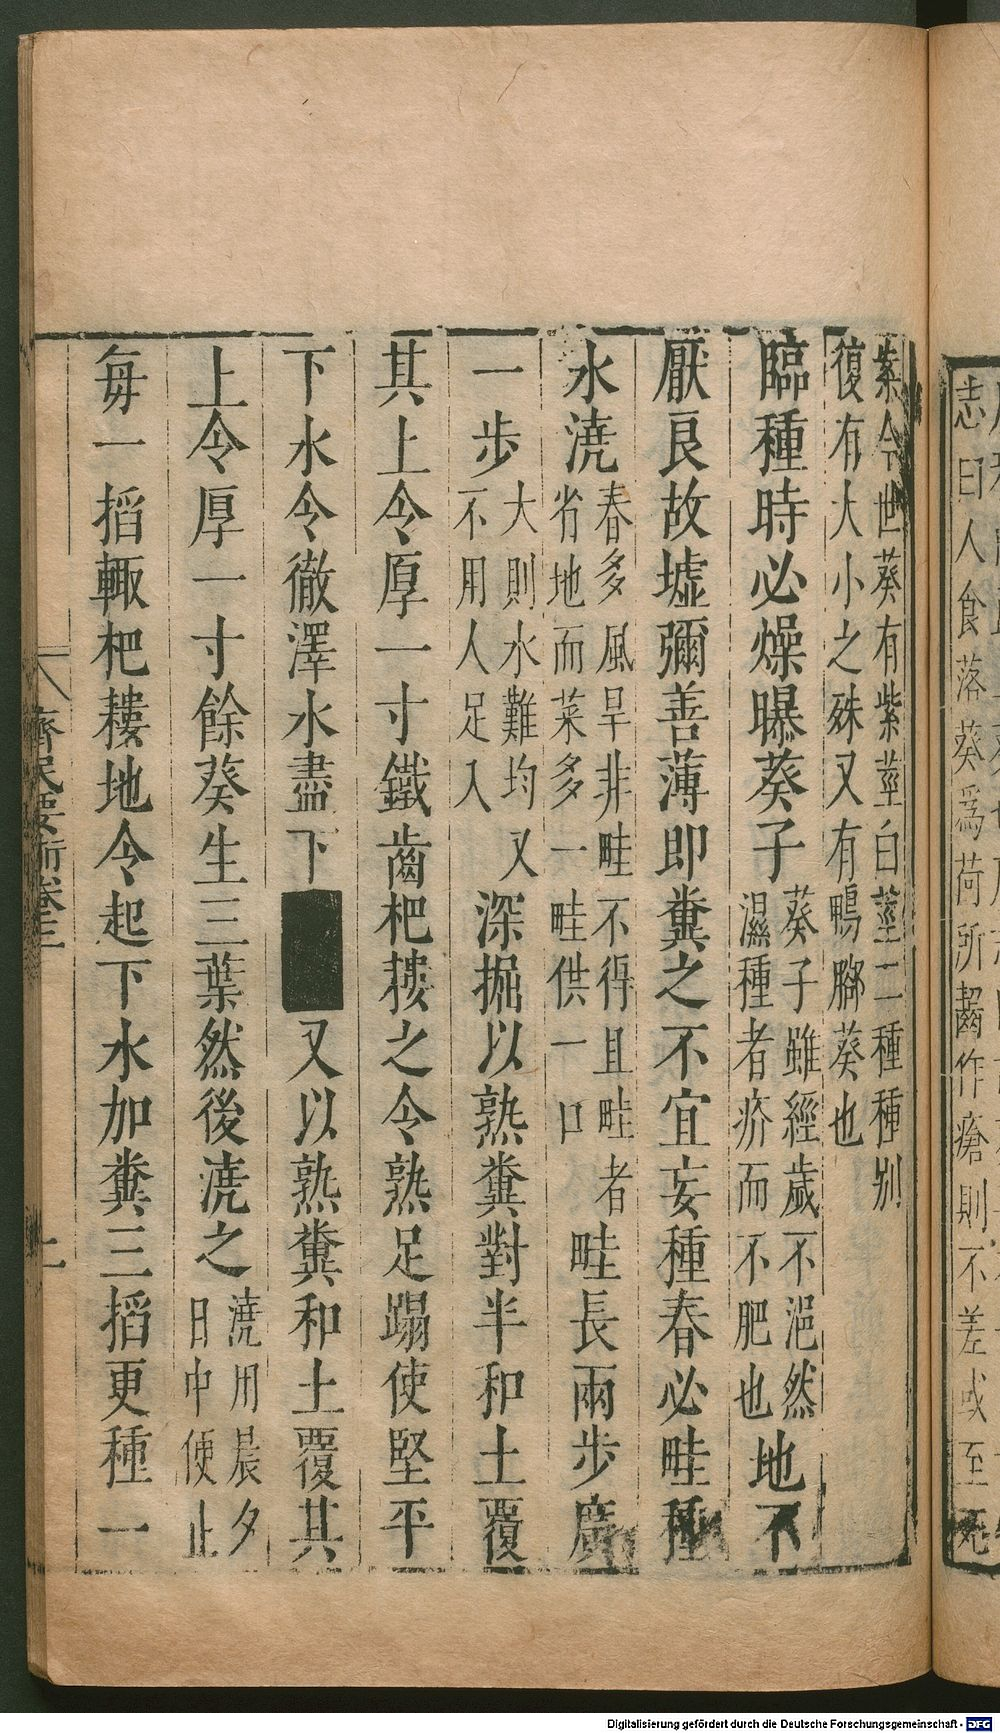 志曰人食落葵爲荷所齧作瘡則不差或至死
紫今世葵有紫莖白莖二種種别
復有大小之殊又有鴨腳葵也
臨種時必燥曝葵子
葵子雖經歲不浥然
濕種者疥而不肥也
地不
厭良故墟彌善薄即糞之不宜妄種春必畦種
水澆
春多風旱非畦不得且畦者
省地而菜多一畦供一口
畦長兩步廣
一步
大則水難均又
不用人足入
深掘以熟糞對半和土覆
其上令厚一寸鐵齒杷耬之令熟足蹋使堅平
下水令徹澤水盡下
又以熟糞和土覆其
上令厚一寸餘葵生三葉然後澆之
澆用晨夕
日中便止
每一掐輙杷耬地令起下水加糞三掐更種一
齊民要術卷三
Digitalisierung gefördert durch die Deutsche Forschungsgemeinschaft - DFG